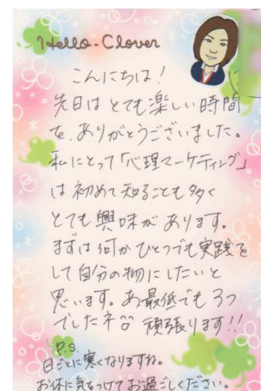 Hello-Clover
こんにちは!
先日はとても楽しい時間
を、ありがとうございました。
私にとって「心理マーケティング」
は初めて知ることも多く
とても興味があります。
まずは何かひとつでも実践を
して自分の物にしたいと
思います。あ最低でも3つ
でしたネ 頑張ります!!
P.S.
日ごとに寒くなりますね。
お体に気をつけてお過ごしください。